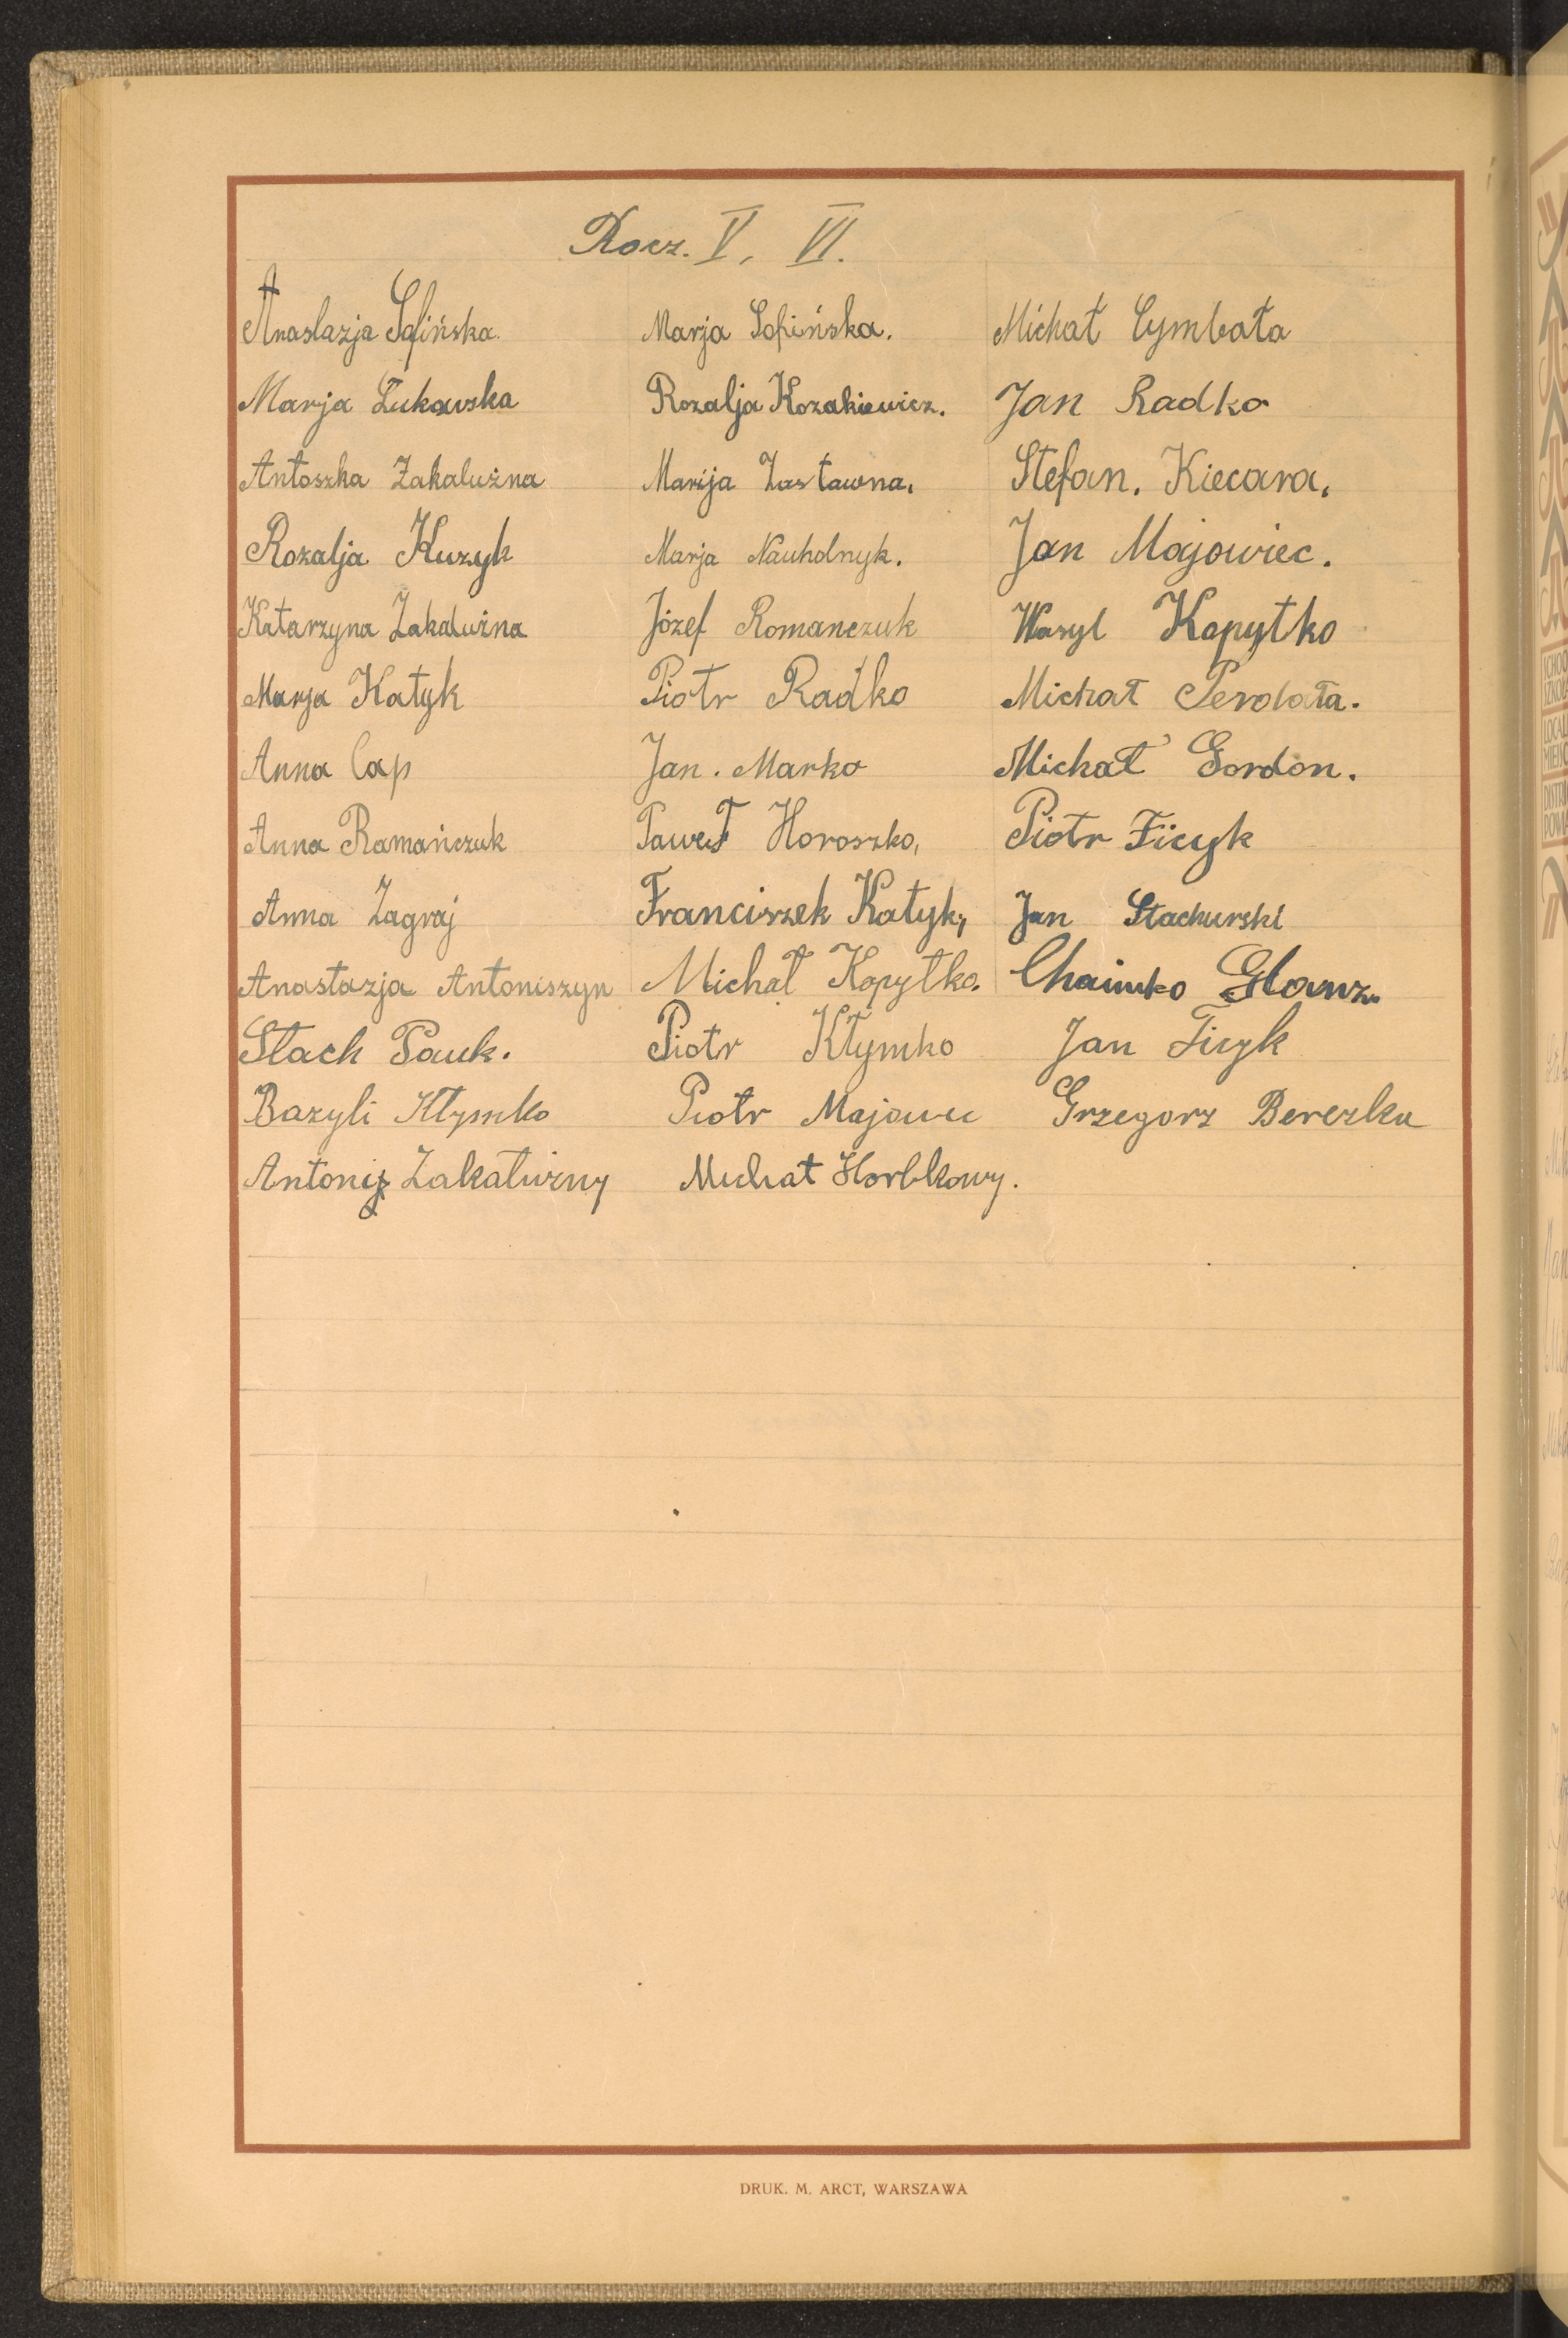 Rocz. V, VI.
Anastazja Sofińska. Marja Sofińska. Michał Cymbała
Marja Łukawska Rozalja Kozakiewicz. Jan Radko
Antoszka Zakalużna Marija Zastawna, Stefan. Kiecara,
Rozalja Kuzyk Marja Nauholnyk. Jan Majowiec.
Katarzyna Zakalużna Józef Romanczuk Wasyl Kopytko
Marja Katyk Piotr Radko Michał
Anna Cap Jan. Marko Michał Gordon.
Anna Ramańczuk Paweł Horoszko, Piotr Ficyk
Anna Zagraj Franciszek Katyk, Jan Stachurski
Anastazja Antoniszyn Michał Kopytko. Chaimko Glanz.
Stach Pauk. Piotr Kłymko Jan Ficyk
Bazyli Kłymko Piotr Majowiec Grzegorz Berezka
Antonij Zakałużny Michał Horbkowy.
DRUK. M. ARCT, WARSZAWA